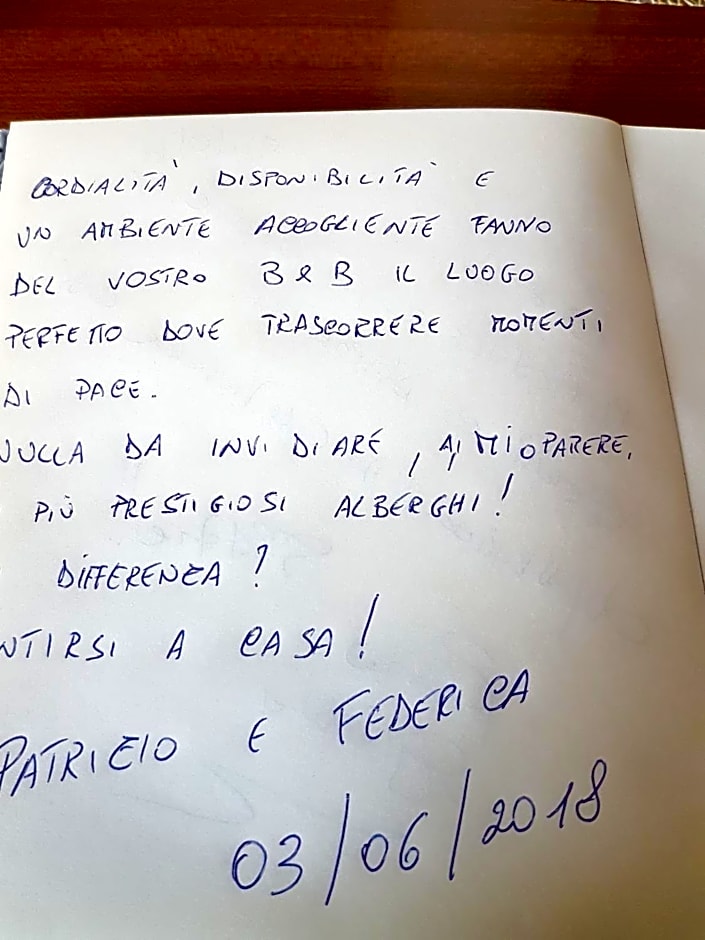 CORDIALITÀ, DISPONIBILITÀ E
UN AMBIENTE ACCOGLIENTE FANNO
DEL VOSTRO B & B IL LUOGO
PERFETTO DOVE TRASCORRERE MOMENTI
DI PACE.
NULLA DA INVIDIARE, A MIO PARERE,
PIÙ PRESTIGIOSI ALBERGHI!
DIFFERENZA?
NTIRSI A CASA!
PATRIZIO E FEDERICA
03/06/2018